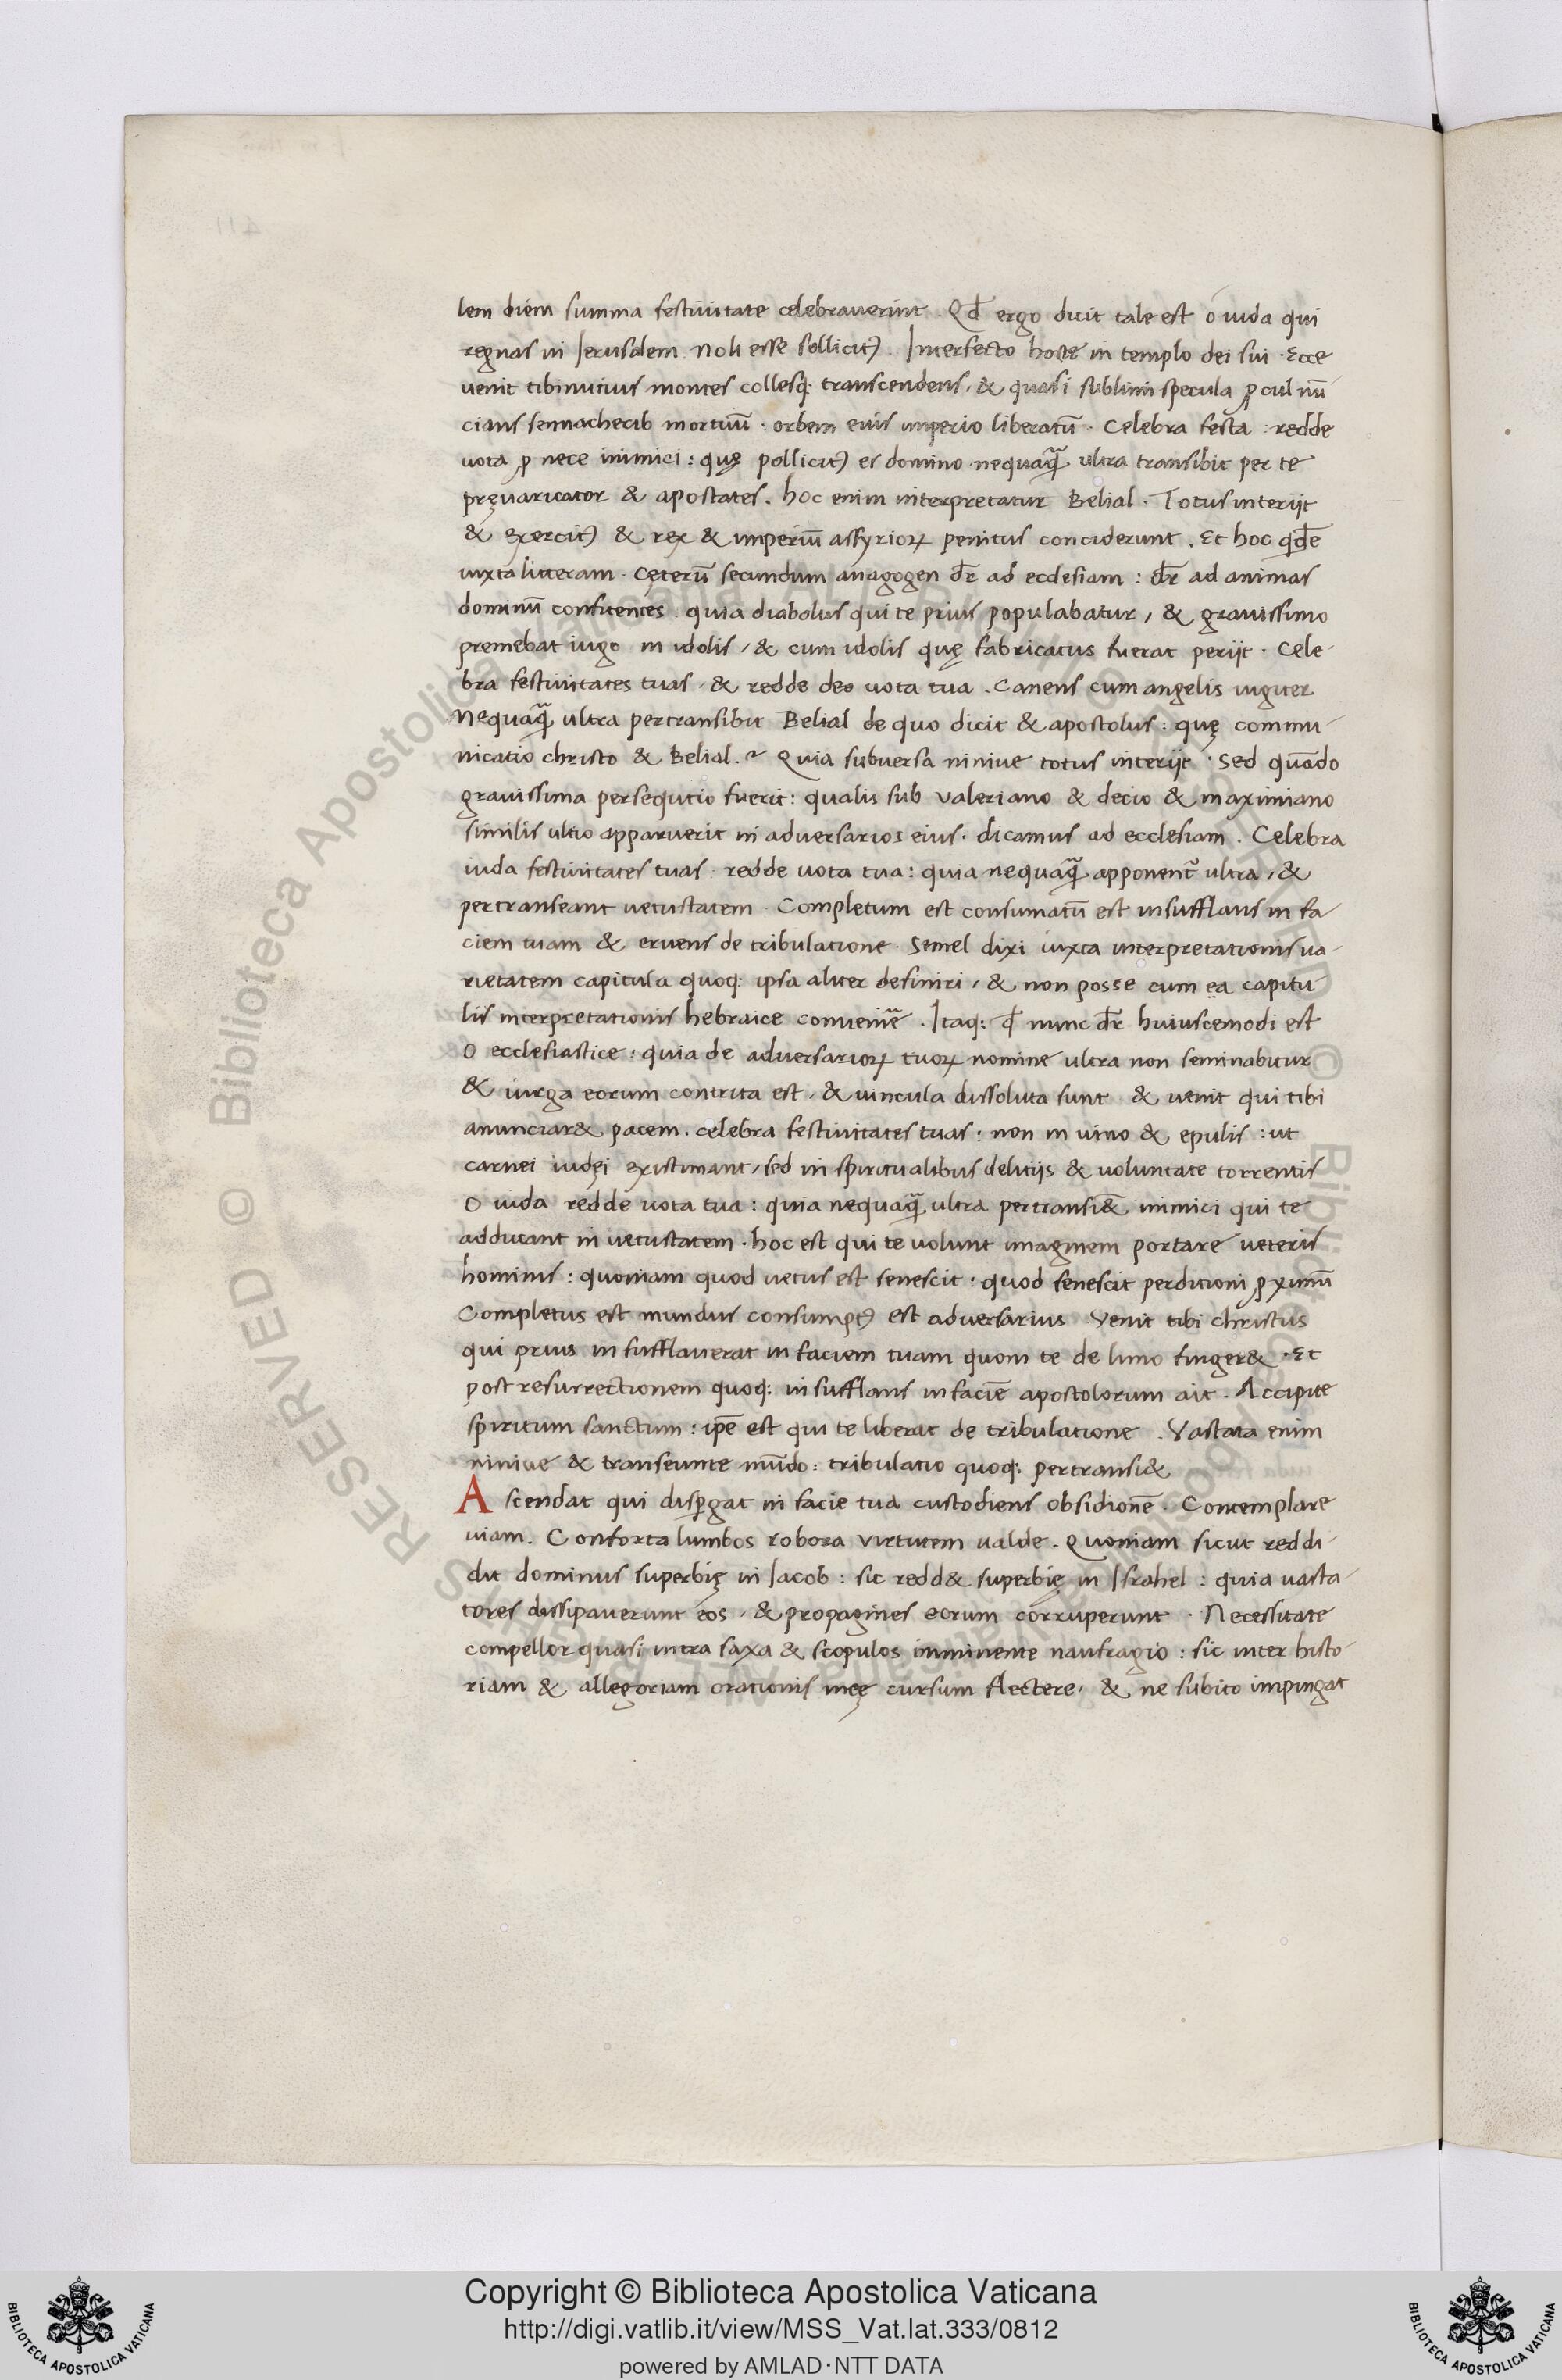 lem diem summa festiuitate celebrauerint. Qđ ergo dicit tale est o iuda qui
regnas in Jerusalem noli esse sollicitꝰ. Interfecto hoste in templo dei sui. Ecce
uenit tibi nuncius montes collesq; transcendens, & quasi sublimi specula ꝓcul nū
cians sennacherib mortuū: orbem eius imperio liberatū. Celebra festa: redde
uota ꝓ nece inimici: quę pollicitꝰ es domino. nequaq̃ ultra transibit per te
pręuaricator & apostates. hoc enim interpretatur Belial. Totus interijt
& exercitꝰ & rex & imperiū assyrioꝝ penitus conciderunt. Et hoc qđe
iuxta litteram. Cęterū secundum anagogen dr̄ ad ecclesiam: dr̄ ad animas
dominū confitentes. quia diabolus qui te prius populabatur, & grauissimo
premebat iugo in idolis, & cum idolis quę fabricatus fuerat perijt. Cele-
bra festiuitates tuas, & redde deo uota tua. Canens cum angelis iugiter
Nequaq̃ ultra pertransibit Belial de quo dicit & apostolus: quę commu-
nicatio christo & Belial.? Quia subuersa niniue totus interijt. Sed quādo
grauissima persequtio fuerit: qualis sub Valeriano & decio & maximiano
similis ultio apparuerit in aduersarios eius. dicamus ad ecclesiam. Celebra
iuda festiuitates tuas. redde uota tua: quia nequaq̃ apponent̃ ultra, &
pertranseant uetustatem. Completum est consumatū est insufflans in fa-
ciem tuam & eruens de tribulatione. Semel dixi iuxta interpretationis ua-
rietatem capitula quoq; ipsa aliter definiri, & non posse cum ea capitu-
lis interpretationis hebraice conuenir̃e. Itaq; qđ nunc dr̄ huiuscemodi est
O ecclesiastice: quia de aduersarioꝝ tuoꝝ nomine ultra non seminabitur
& iurga eorum contrita est, & uincula dissoluta sunt & uenit qui tibi
anunciar& pacem. celebra festiuitates tuas: non in uino & epulis: ut
carnei iudęi existimant, sed in spiritualibus delitijs & uoluntate torrentis
O iuda redde uota tua: quia nequaq̃ ultra pertransi&̄ inimici qui te
adducant in uetustatem. hoc est qui te uolunt imaginem portare ueteris
hominis: quoniam quod uetus est senescit: quod senescit perditioni ꝓximū
Completus est mundus consumptꝰ est aduersarius Venit tibi christus
qui prius insufflauerat in faciem tuam quom te de limo finger&. Et
post resurrectionem quoq; insufflans in faciē apostolorum ait. Accipite
spiritum sanctum: ip̄e est qui te liberat de tribulatione. Vastata enim
niniue & transeunte mūdo: tribulatio quoq; pertransi&
Ascendat qui disꝑgat in facie tua custodiens obsidionē. Contemplare
uiam. Conforta lumbos robora virtutem ualde. Quoniam sicut reddi-
dit dominus superbię in Jacob: sic redd& superbię in Israhel: quia uasta-
tores dissipauerunt eos, & propagines eorum corruperunt. Necessitate
compellor quasi intra saxa & scopulos imminente naufragio: sic inter histo-
riam & allegoriam orationis meę cursum flectere, & ne subito impingat
Copyright © Biblioteca Apostolica Vaticana
http://digi.vatlib.it/view/MSS_Vat.lat.333/0812
powered by AMLAD·NTT DATA
BIBLIOTECA APOSTOLICA VATICANA
BIBLIOTECA APOSTOLICA VATICANA